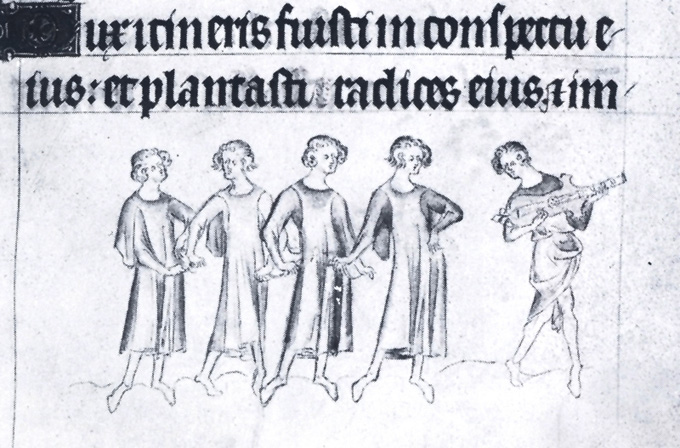 Dux itineris fuisti in conspectu e
ius: et plantasti radices eius, & im